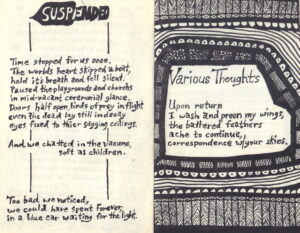 SUSPENDED
Time stopped for us once.
The worlds heart skipped a beat,
held it's breath and fell silent.
Paused the playgrounds and churchs
in mid-vacant ceremonial glance.
Doors half open, birds of prey in flight
even the dead lay still indeedy
eyes fixed to thier sagging ceilings.
And we chatted in the vacume,
soft as children.
Too bad we noticed,
we could have spent forever,
in a blue car waiting for the light.
Various Thoughts
Upon return
I wash and preen my wings,
the battered feathers
ache to continue,
correspondence w/your skies.